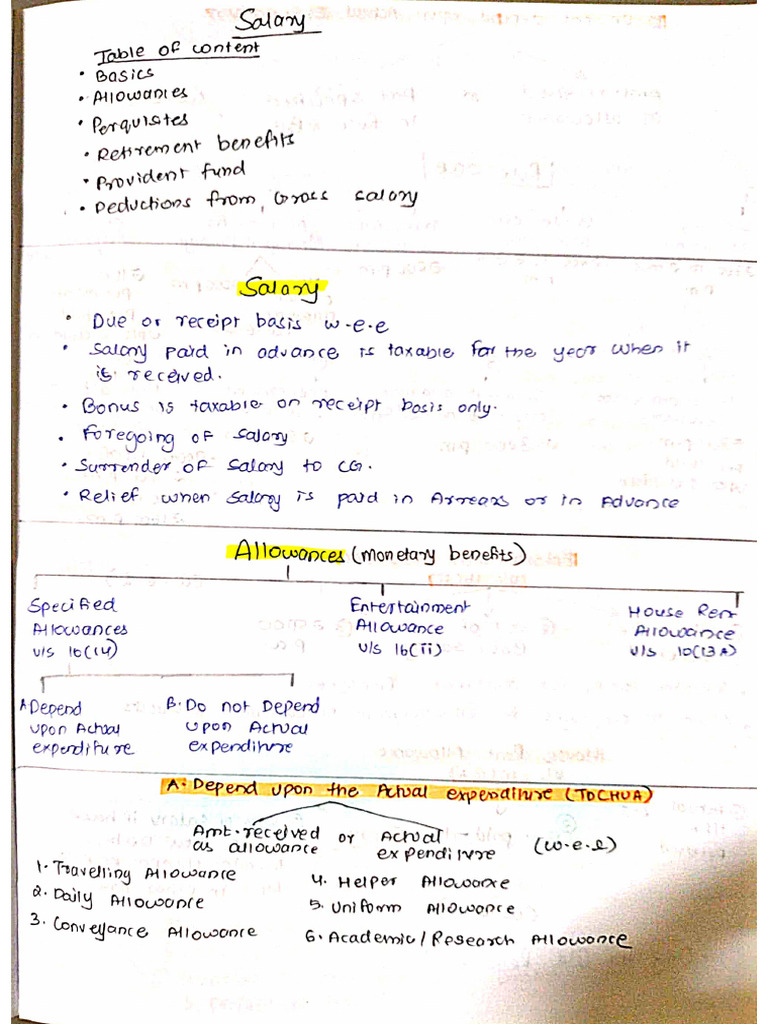 Salary
Table of content
• Basics
• Allowances
• Perquisites
• Retirement benefits
• Provident fund
• Deductions from Gross salary
Salary
• Due or receipt basis w.e.e
• Salary paid in advance is taxable for the year when it
is received.
• Bonus is taxable on receipt basis only.
• Foregoing of salary
• Surrender of salary to CG.
• Relief when salary is paid in Arrears or in Advance
Allowances (monetary benefits)
Specified Allowances u/s 10(14)
Entertainment Allowance u/s 16(ii)
House Rent Allowance u/s 10(13A)
A. Depend upon Actual expenditure
B. Do not Depend upon Actual expenditure
A. Depend upon the Actual expenditure (TDCHUA)
Amt. received as allowance or Actual expenditure (w.e.l)
1. Travelling Allowance
2. Daily Allowance
3. Conveyance Allowance
4. Helper Allowance
5. Uniform Allowance
6. Academic/Research Allowance